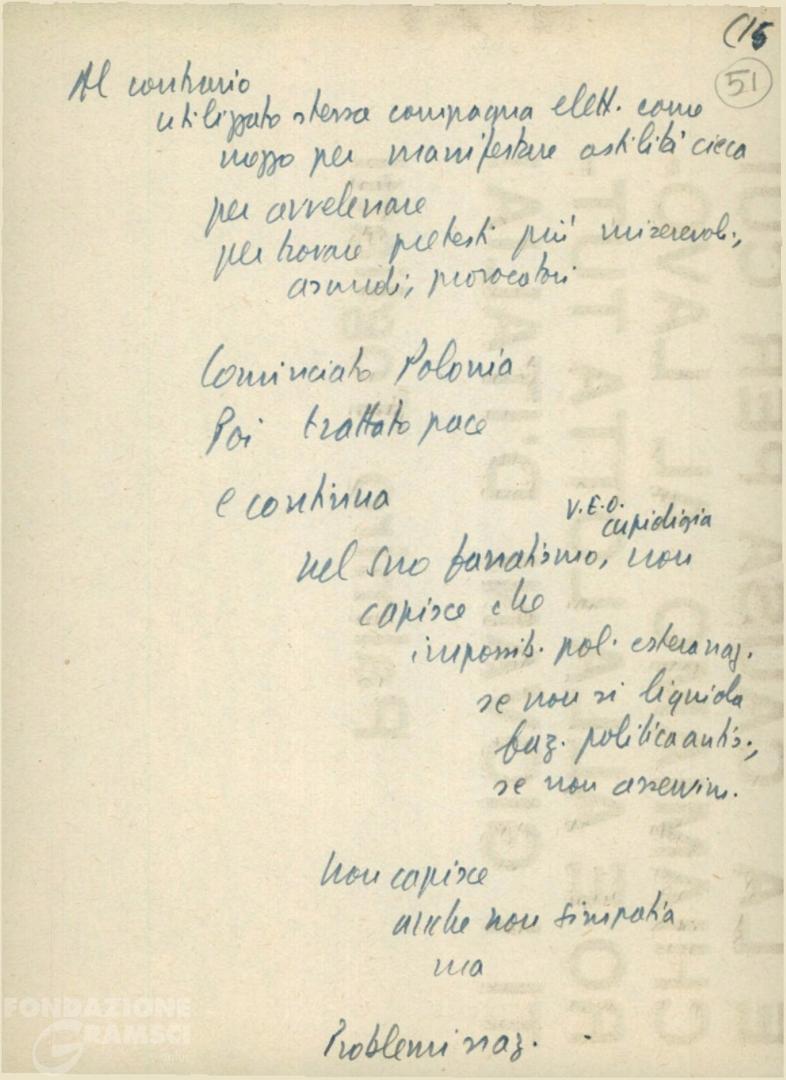 (15
51
Al contrario
utilizzato stessa campagna elett. come
mezzo per manifestare ostilità cieca
per avvelenare
per trovare pretesti più miserevoli,
assurdi, provocatori
Cominciato Polonia
Poi trattato pace
e continua
V.E.O.
cupidigia
nel suo fanatismo, non
capisce che
impossib. pol. estera naz.
se non si liquida
faz. politica antis.,
se non
Non capisce
anche non simpatia
ma
Problemi naz.
FONDAZIONE
GRAMSCI